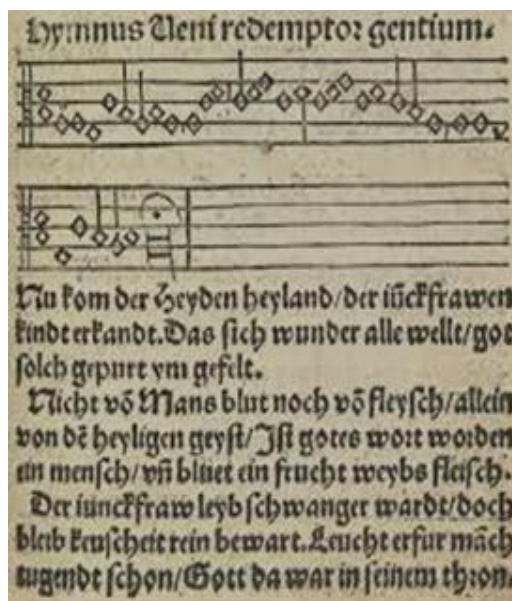 Hymnus Ueni redemptor gentium.
Nu kom der Heyden heyland/der iũckfrawen
kindt erkandt. Das sich wunder alle wellt/got
solch gepurt ym gefelt.
Nicht võ Mans blut noch võ fleysch/allein
von dẽ heyligen geyst/Ist gotes wort worden
ein mensch/vñ bluet ein frucht weybs fleisch.
Der iunckfraw leyb schwanger wardt/doch
bleib keuscheit rein bewart. Leucht erfur mãch
tugendt schon/Gott da war in seinem thron.